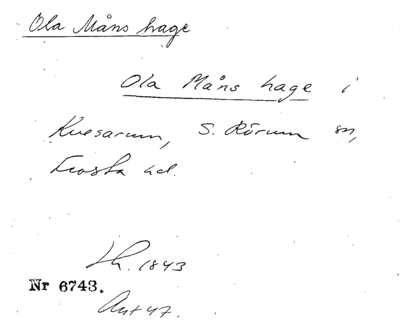 Ola Måns hage
Ola Måns hage i
Kvesarum, S. Rörum sn,
Frosta hd.
Lh. 1843
Nr 6743.
Ant 47.